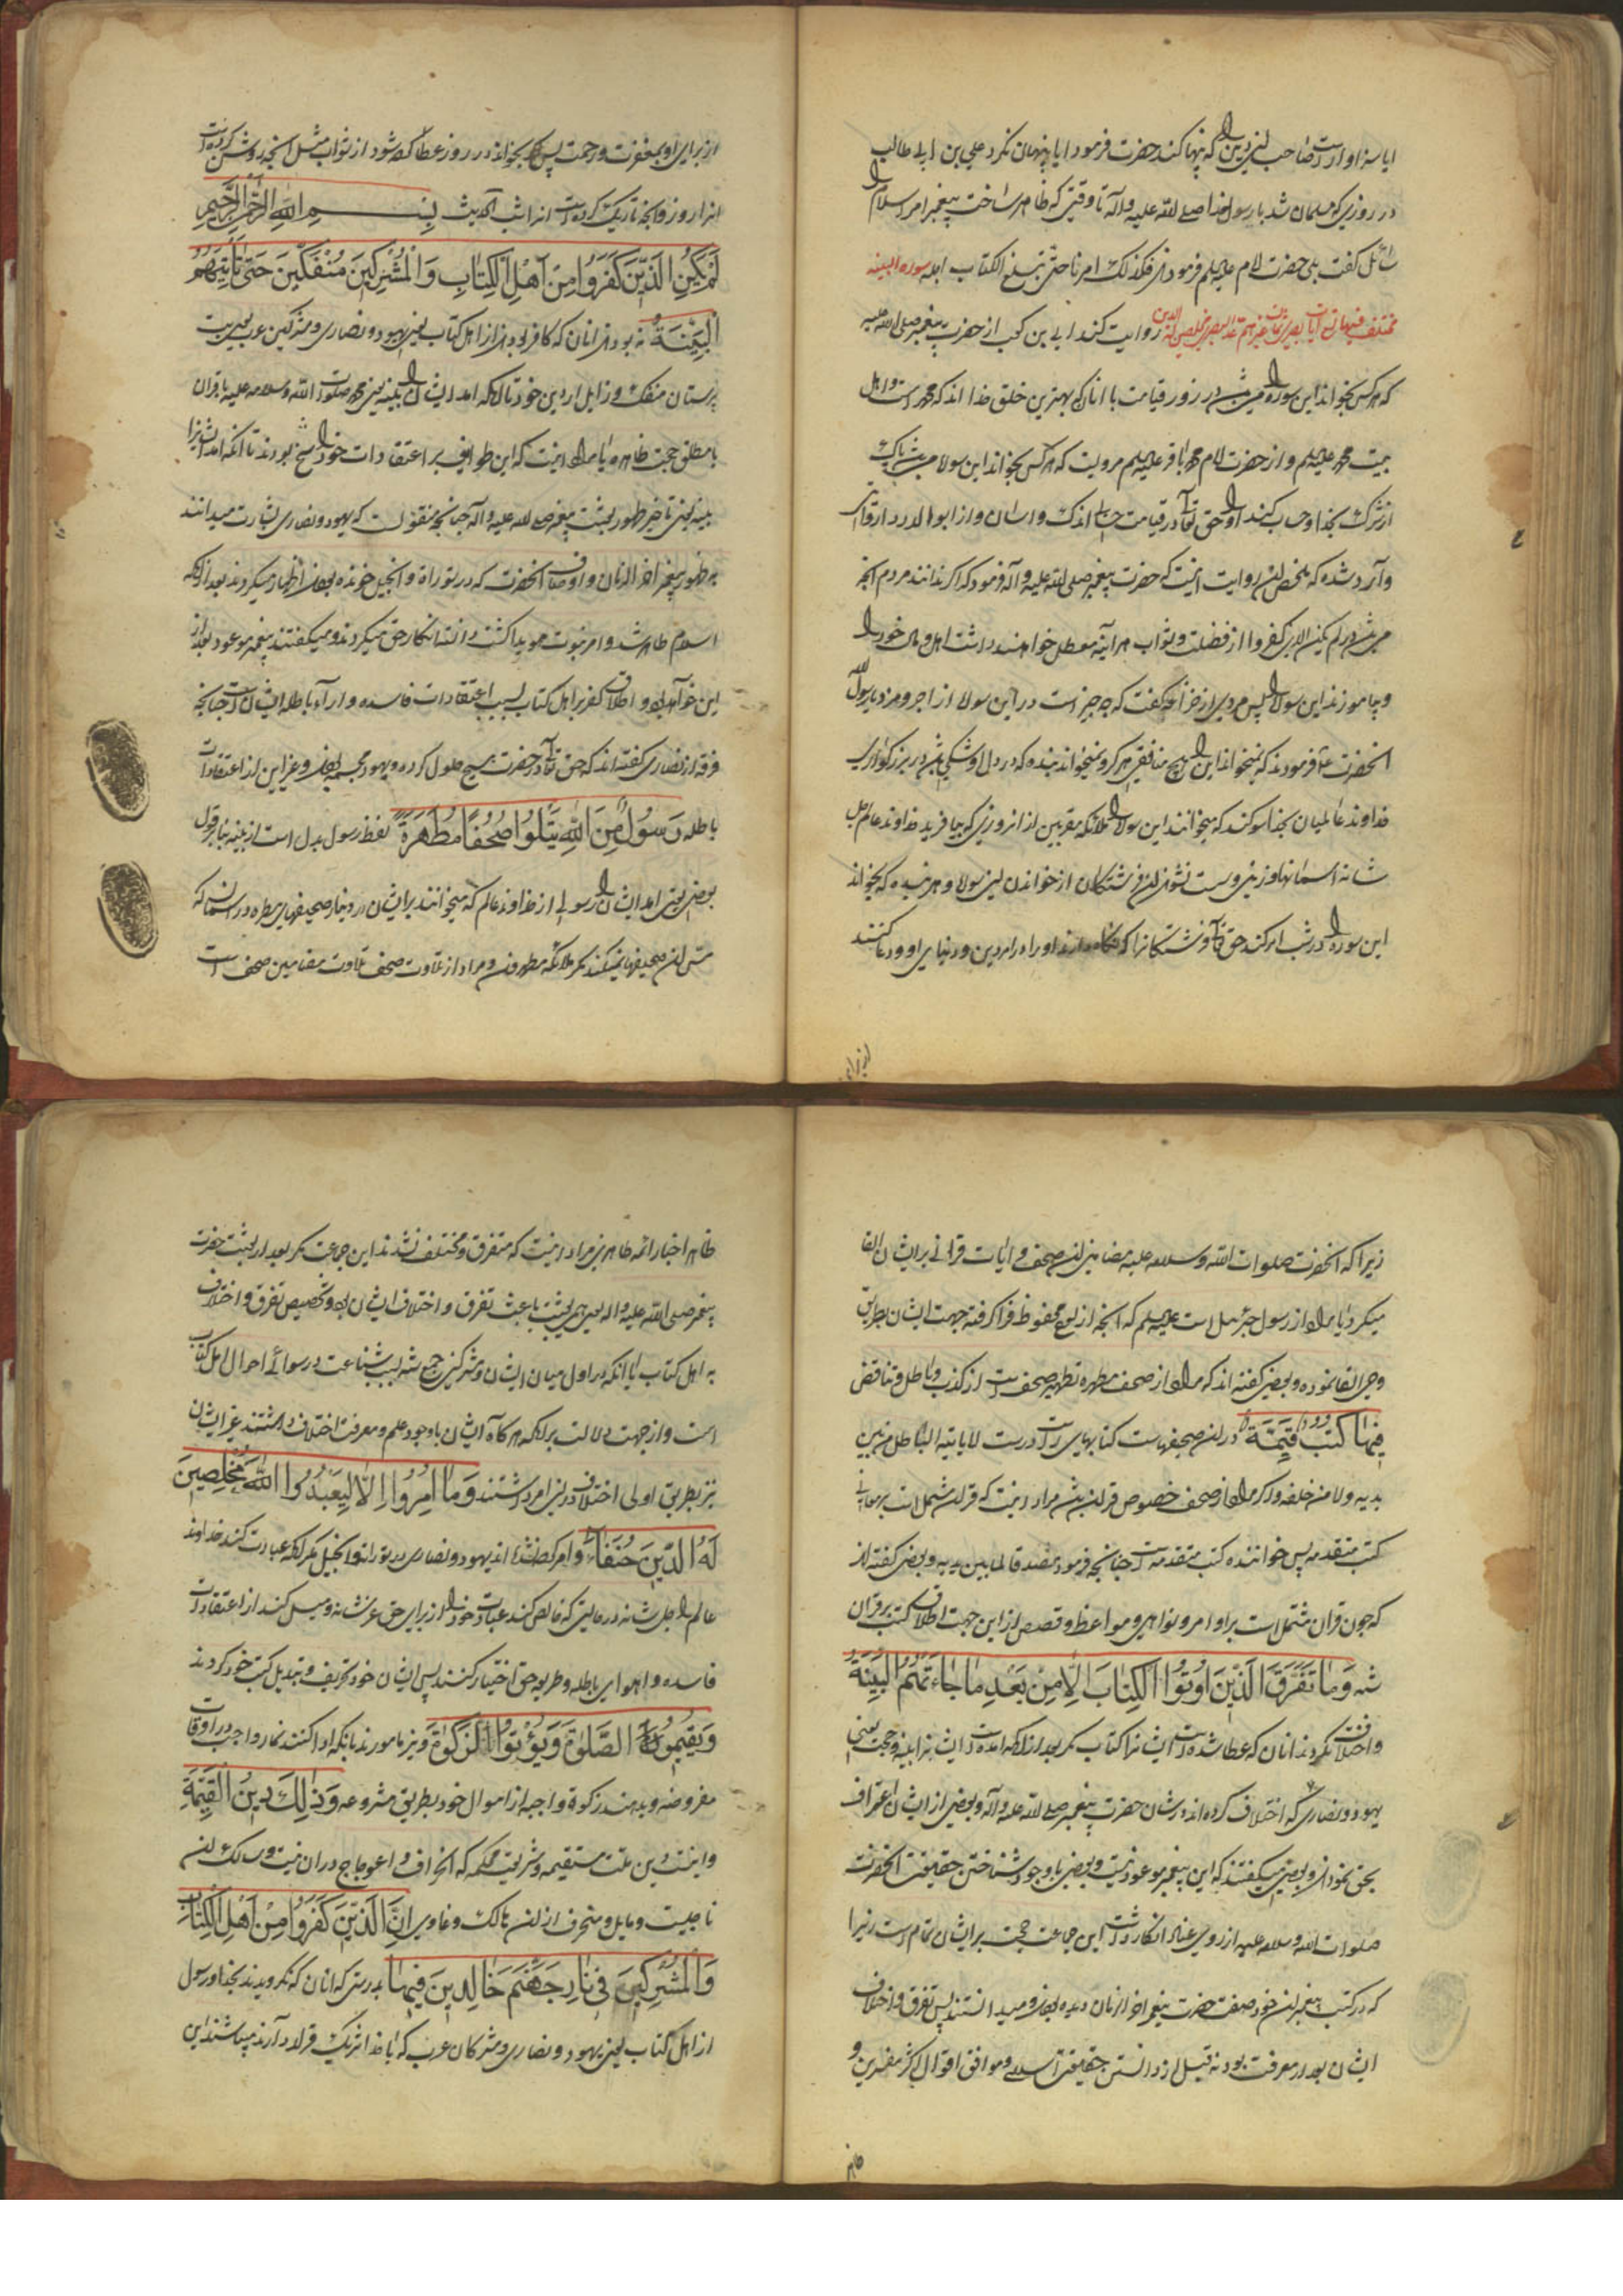 ایا سزاوار است صاحب این دین را که پنهان کند حضرت فرمود ایا پنهان نکرد علی بن ابی طالب
در روزی که مسلمان شد با رسول خدا صلی الله علیه و اله تا وقتی که ظاهر ساخت پیغمبر امر اسلام را
سائل گفت بلی حضرت امام علیه السلم فرمودند فکذلک امرنا حتی تبلغ الکتاب اجله سوره البینه
روایت کند ابی بن کعب از حضرت پیغمبر صلی الله علیه
که هر کس بخواند این سوره را میباشد در روز قیامت با انان که بهترین خلق خدا اند که محمد است و اهل
بیت محمد علیهم السلم و از حضرت امام محمد باقر علیه السلم مرویست که هر کس بخواند این سوره
از شرک بخدا و حساب کند او را حق تعالی در قیامت حسابی اندک و اسان و از ابو الدردا
وارد شده که ملخص ان روایت اینست که حضرت پیغمبر صلی الله علیه و اله فرمود که اگر بدانند مردم انچه
میباشد در لم یکن الذین کفروا از فضیلت و ثواب هر اینه معطل خواهند داشت اهل و مال خود را
و بیاموزند این سوره را پس مردی از خزاعه گفت که چه چیز است در این سوره از اجر و مزد یا رسول الله
انحضرت فرمودند که نمیخواند این را هیچ منافقی هرگز و نمیخواند بنده که در دل او شکی باشد در بزرگواری
خداوند عالمیان بخدا سوگند که میخوانند این سوره را ملائکه مقربین از ان روزی که بیافرید خداوند عالم جل
شانه اسمانها و زمین و سست نشوند ان فرشتگان از خواندن این سوره و هر بنده که بخواند
این سوره را در شب امر کند حق تعالی فرشتگانرا که نگاه دارند او را در دین و دنیای او و دعا کنند
از برای
از برای او بمغفرت و رحمت پس اگر بخواند در روز عطا کرده شود از ثواب مثل انچه روشن کرده است
انرا روز و انچه تاریک کرده است انرا شب الحدیث بِسْمِ اللهِ الرَّحْمنِ الرَّحِیمِ
لَمْ یَکُنِ الَّذِینَ کَفَرُوا مِنْ اَهْلِ الْکِتَابِ وَالْمُشْرِکِینَ مُنْفَکِّینَ حَتّٰی تَاْتِیَهُمُ
الْبَیِّنَةُ نه بودند انان که کافر بودند از اهل کتاب یعنی یهود و نصاری و مشرکین عرب یعنی بت
پرستان منفک و زایل از دین خود تا انکه امد ایشان را بینه یعنی محمد صلوات الله و سلامه علیه با قران
یا مطلق حجت ظاهره یا مراد اینست که این طوایف بر اعتقادات خود راسخ بودند تا انکه امد ایشانرا
بینه یعنی تا حین ظهور بعثت پیغمبر صلی الله علیه و اله چنانچه منقولست که یهود و نصاری بشارت میدادند
به ظهور پیغمبر اخر الزمان و اوصاف انحضرت که در توراة و انجیل خونده بودند اظهار میکردند بعد از انکه
اسلام ظاهر شد و امر نبوت هویدا گشت دانسته انکار حق میکردند و میگفتند پیغمبر موعود بعد از
این خواهد بود و اطلاق کفر بر اهل کتاب بسبب اعتقادات فاسده و اراء باطله ایشان است چنانچه
فرقه از نصاری گفته اند که حق تعالی در حضرت مسیح حلول کرده و یهود مجسمه بودند و غیر این از اعتقادات
باطله رَسُولٌ مِنَ اللهِ یَتْلُوا صُحُفًا مُطَهَّرَةً لفظ رسول بدل است از بینه بنابر قول
بعضی یعنی امد ایشان را رسولی از خداوند عالم که میخوانند بر ایشان در دنیا صحیفهای مطهره در اسمان که
مس ان صحیفها نمیکنند مگر ملائکه مطهرون و مراد از تلاوت صحف تلاوت مضامین صحف است
زیرا که انحضرت صلوات الله و سلامه علیه مضامین ان صحف و ایات قرانی بر ایشان القا
میکرد یا مراد از رسول جبرئیل است علیه السلم که انچه از لوح محفوظ فرا گرفته جهت ایشان بطریق
وحی القا نموده و بعضی گفته اند که مراد از صحف مطهره تطهیر صحف است از کذب و باطل و تناقض
فِیهَا کُتُبٌ قَیِّمَةٌ در ان صحیفهاست کتابهای راست درست لایاتیه الباطل من بین
یدیه و لا من خلفه و اگر مراد از صحف خصوص قران باشد مراد اینست که قران مشتمل است بر معانی
کتب متقدمه پس خواننده کتب متقدمه است چنانچه فرمود مصدقا لما بین یدیه و بعضی گفته اند
که چون قران مشتمل است بر اوامر و نواهی و مواعظ و قصص از این جهت اطلاق کتب بر قران
شده وَمَا تَفَرَّقَ الَّذِینَ اُوتُوا الْکِتَابَ اِلَّا مِنْ بَعْدِ مَا جَاءَتْهُمُ الْبَیِّنَةُ
و اختلاف نکردند انان که عطا شده است ایشانرا کتاب مگر بعد از انکه امده است ایشانرا بینه و حجت یعنی
یهود و نصاری که اختلاف کرده اند در شان حضرت پیغمبر صلی الله علیه و اله و بعضی از ایشان اعتراف
بحق نمودند و بعضی میگفتند که این پیغمبر موعود نیست و بعضی با وجود شناختن حقیقت انحضرت
صلوات الله و سلامه علیه از روی عناد انکار داشت این جماعت حجت بر ایشان تمام است زیرا
که در کتب پیغمبران خود صفت حضرت پیغمبر اخر الزمان دیده بودند و میدانستند پس تفرق و اختلاف
ایشان بعد از معرفت بود نه قبل از دانستن حقیقت اسلام و موافق اقوال اکثر مفسرین و
ظاهر
ظاهر اخبار ائمه طاهرین مراد اینست که متفرق و مختلف نشدند این جماعت مگر بعد از بعثت حضرت
پیغمبر صلی الله علیه و اله یعنی همین بعثت باعث تفرق و اختلاف ایشان بود و تخصیص تفرق و اختلاف
به اهل کتاب با انکه در اول میان ایشان و مشرکین جمع شد بسبب شناعت و رسوائی احوال اهل کتاب
است و از جهت دلالت بر انکه هر گاه ایشان با وجود علم و معرفت اختلاف داشتند غیر ایشان
نیز بطریق اولی اختلاف در این امر داشتند وَمَا اُمِرُوا اِلَّا لِیَعْبُدُوا اللهَ مُخْلِصِینَ
لَهُ الدِّینَ حُنَفَاءَ و امر کرده نشده اند یهود و نصاری در توراة و انجیل مگر انکه عبادت کنند خداوند
عالم را جل شانه در حالتی که خالص کنند عبادت خود را از برای حق عز شانه و میل کنند از اعتقادات
فاسده و اهوای باطله و طریقه حق اختیار کنند پس ایشان خود تحریف و تبدیل کتب خود کردند
وَیُقِیمُوا الصَّلٰوةَ وَیُؤْتُوا الزَّکٰوةَ و نیز مامورند بانکه ادا کنند نماز واجب در اوقات
مفروضه و بدهند زکوة واجبه از اموال خود بطریق مشروعه وَذٰلِکَ دِینُ الْقَیِّمَةِ
و اینست دین ملت مستقیمه و شریعت محکمه که انحراف و اعوجاج در ان نیست و سالک ان
ناجیست و مایل و منحرف از ان هالک و غاوی اِنَّ الَّذِینَ کَفَرُوا مِنْ اَهْلِ الْکِتَابِ
وَالْمُشْرِکِینَ فِی نَارِ جَهَنَّمَ خَالِدِینَ فِیهَا بدرستی که انان که نگرویدند بخدا و رسول
از اهل کتاب یعنی یهود و نصاری و مشرکان عرب که با خدا شریک قرار دادند میباشند این